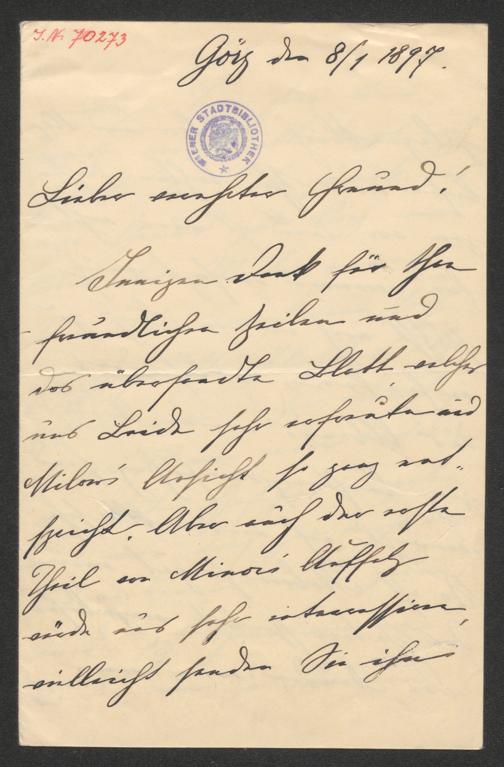 J.N. 70273
Görz den 8/1 1897.
WIENER STADTBIBLIOTHEK
Lieber verehrter Freund!
Innigen Dank für Ihre
freundlichen Zeilen und
das übersandte Blatt, welches
uns Beide sehr erfreute und
Milow's Ansicht so ganz ent-
spricht. Aber auch der erste
Theil von Minor's Aufsatz
würde uns sehr interessiren,
vielleicht senden Sie ihn